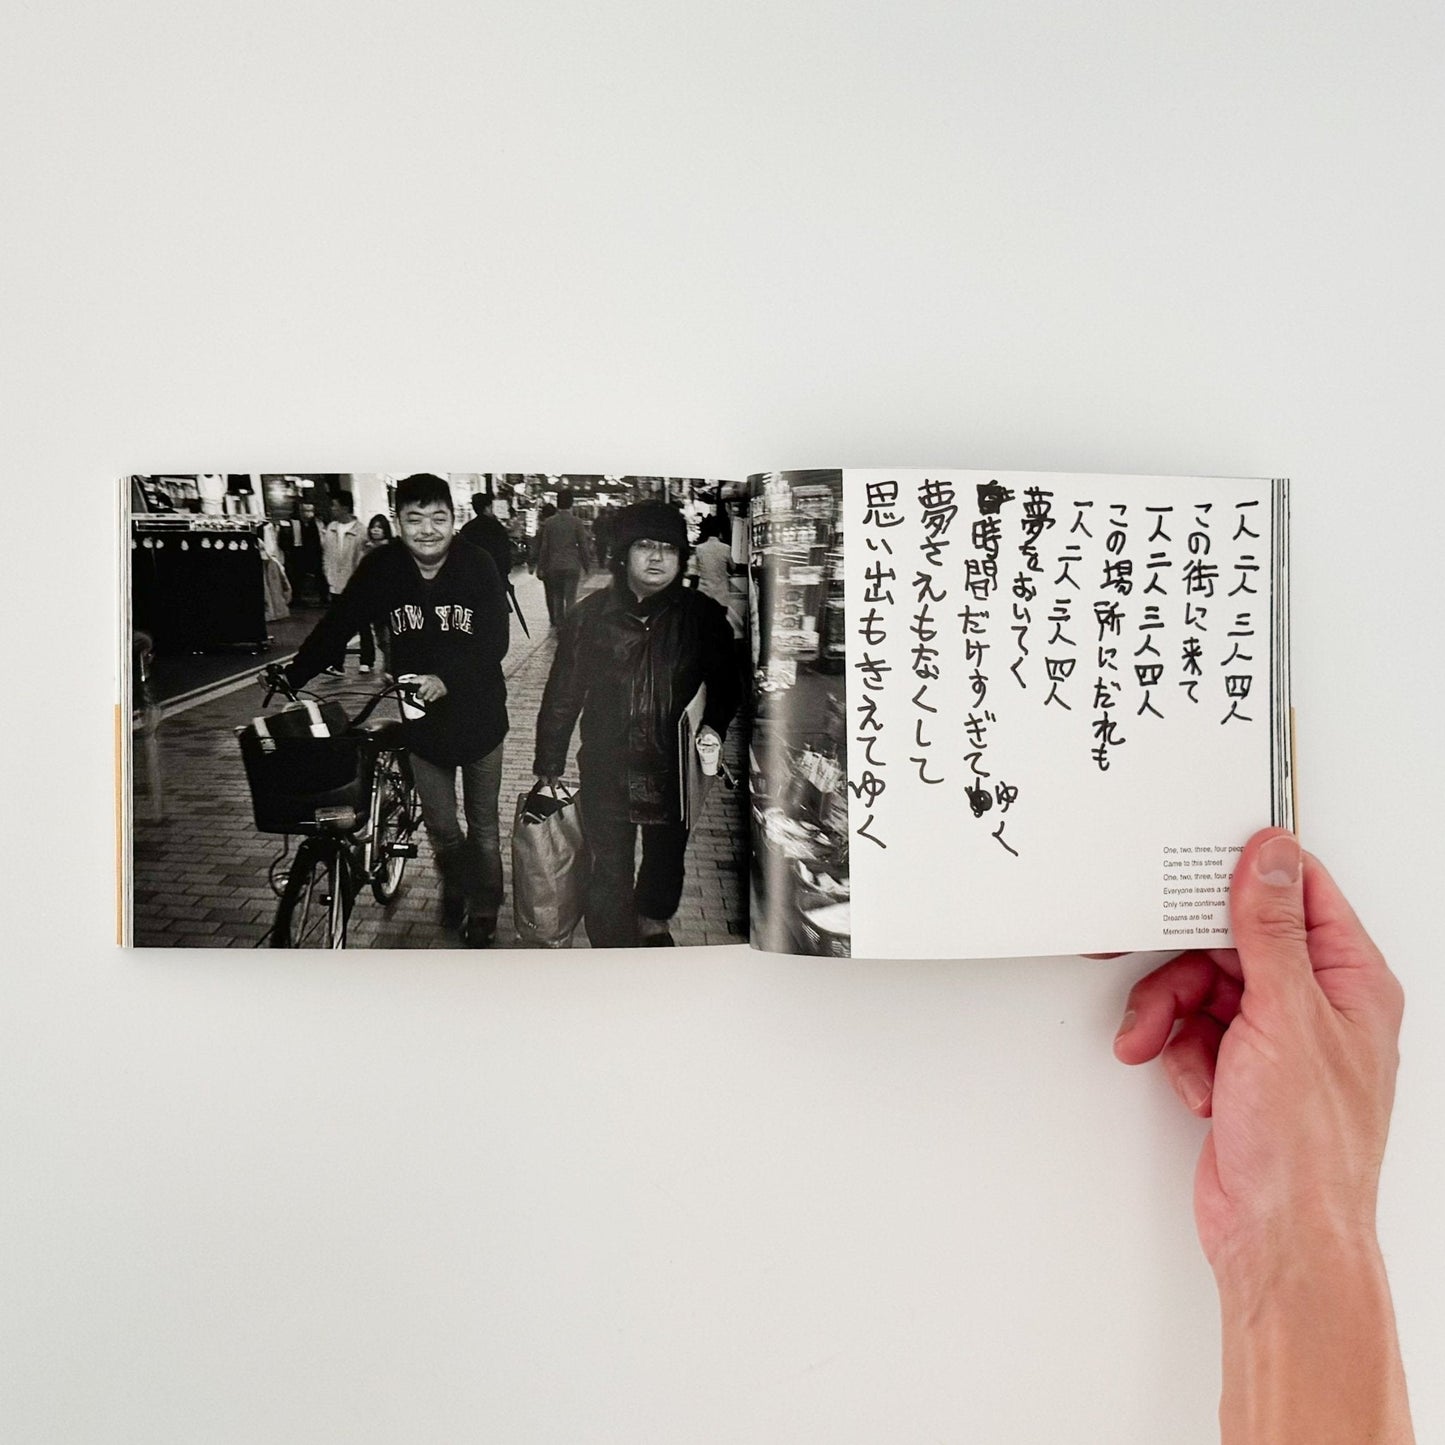 一人 二人 三人 四人
この街に来て
一人 二人 三人 四人
この場所にだれも
一人 二人 三人 四人
夢をおいてく
時間だけすぎてゆく
夢さえもなくして
思い出もきえてゆく
One, two, three, four
Came to this street
One, two, three, four
Everyone leaves a
Only time continues
Dreams are lost
Memories fade away
NEW YORK